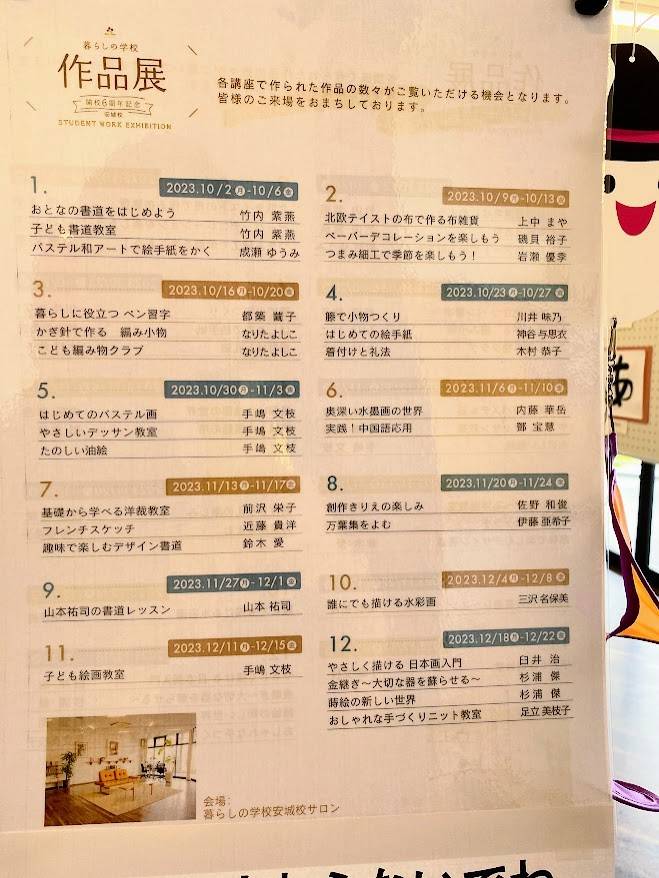 暮らしの学校
作品展
開校6周年記念
安城校
STUDENT WORK EXHIBITION
各講座で作られた作品の数々がご覧いただける機会となります。
皆様のご来場をおまちしております。
1. 2023.10/2月-10/6金
おとなの書道をはじめよう 竹内 紫燕
子ども書道教室 竹内 紫燕
パステル和アートで絵手紙をかく 成瀬 ゆうみ
2. 2023.10/9月-10/13金
北欧テイストの布で作る布雑貨 上中 まや
ペーパーデコレーションを楽しもう 磯貝 裕子
つまみ細工で季節を楽しもう! 岩瀬 優季
3. 2023.10/16月-10/20金
暮らしに役立つ ペン習字 都築 蕺子
かぎ針で作る 編み小物 なりたよしこ
こども編み物クラブ なりたよしこ
4. 2023.10/23月-10/27金
籐で小物つくり 川井 味乃
はじめての絵手紙 神谷 与思衣
着付けと礼法 木村 恭子
5. 2023.10/30月-11/3金
はじめてのパステル画 手嶋 文枝
やさしいデッサン教室 手嶋 文枝
たのしい油絵 手嶋 文枝
6. 2023.11/6月-11/10金
奥深い水墨画の世界 内藤 華岳
実践!中国語応用 鄧 宝慧
7. 2023.11/13月-11/17金
基礎から学べる洋裁教室 前沢 栄子
フレンチスケッチ 近藤 貴洋
趣味で楽しむデザイン書道 鈴木 愛
8. 2023.11/20月-11/24金
創作きりえの楽しみ 佐野 和俊
万葉集をよむ 伊藤 亜希子
9. 2023.11/27月-12/1金
山本祐司の書道レッスン 山本 祐司
10. 2023.12/4月-12/8金
誰にでも描ける水彩画 三沢 名保美
11. 2023.12/11月-12/15金
子ども絵画教室 手嶋 文枝
12. 2023.12/18月-12/22金
やさしく描ける 日本画入門 臼井 治
金継ぎ〜大切な器を蘇らせる〜 杉浦 傑
蒔絵の新しい世界 杉浦 傑
おしゃれな手づくりニット教室 足立 美枝子
会場:
暮らしの学校安城校サロン
あ